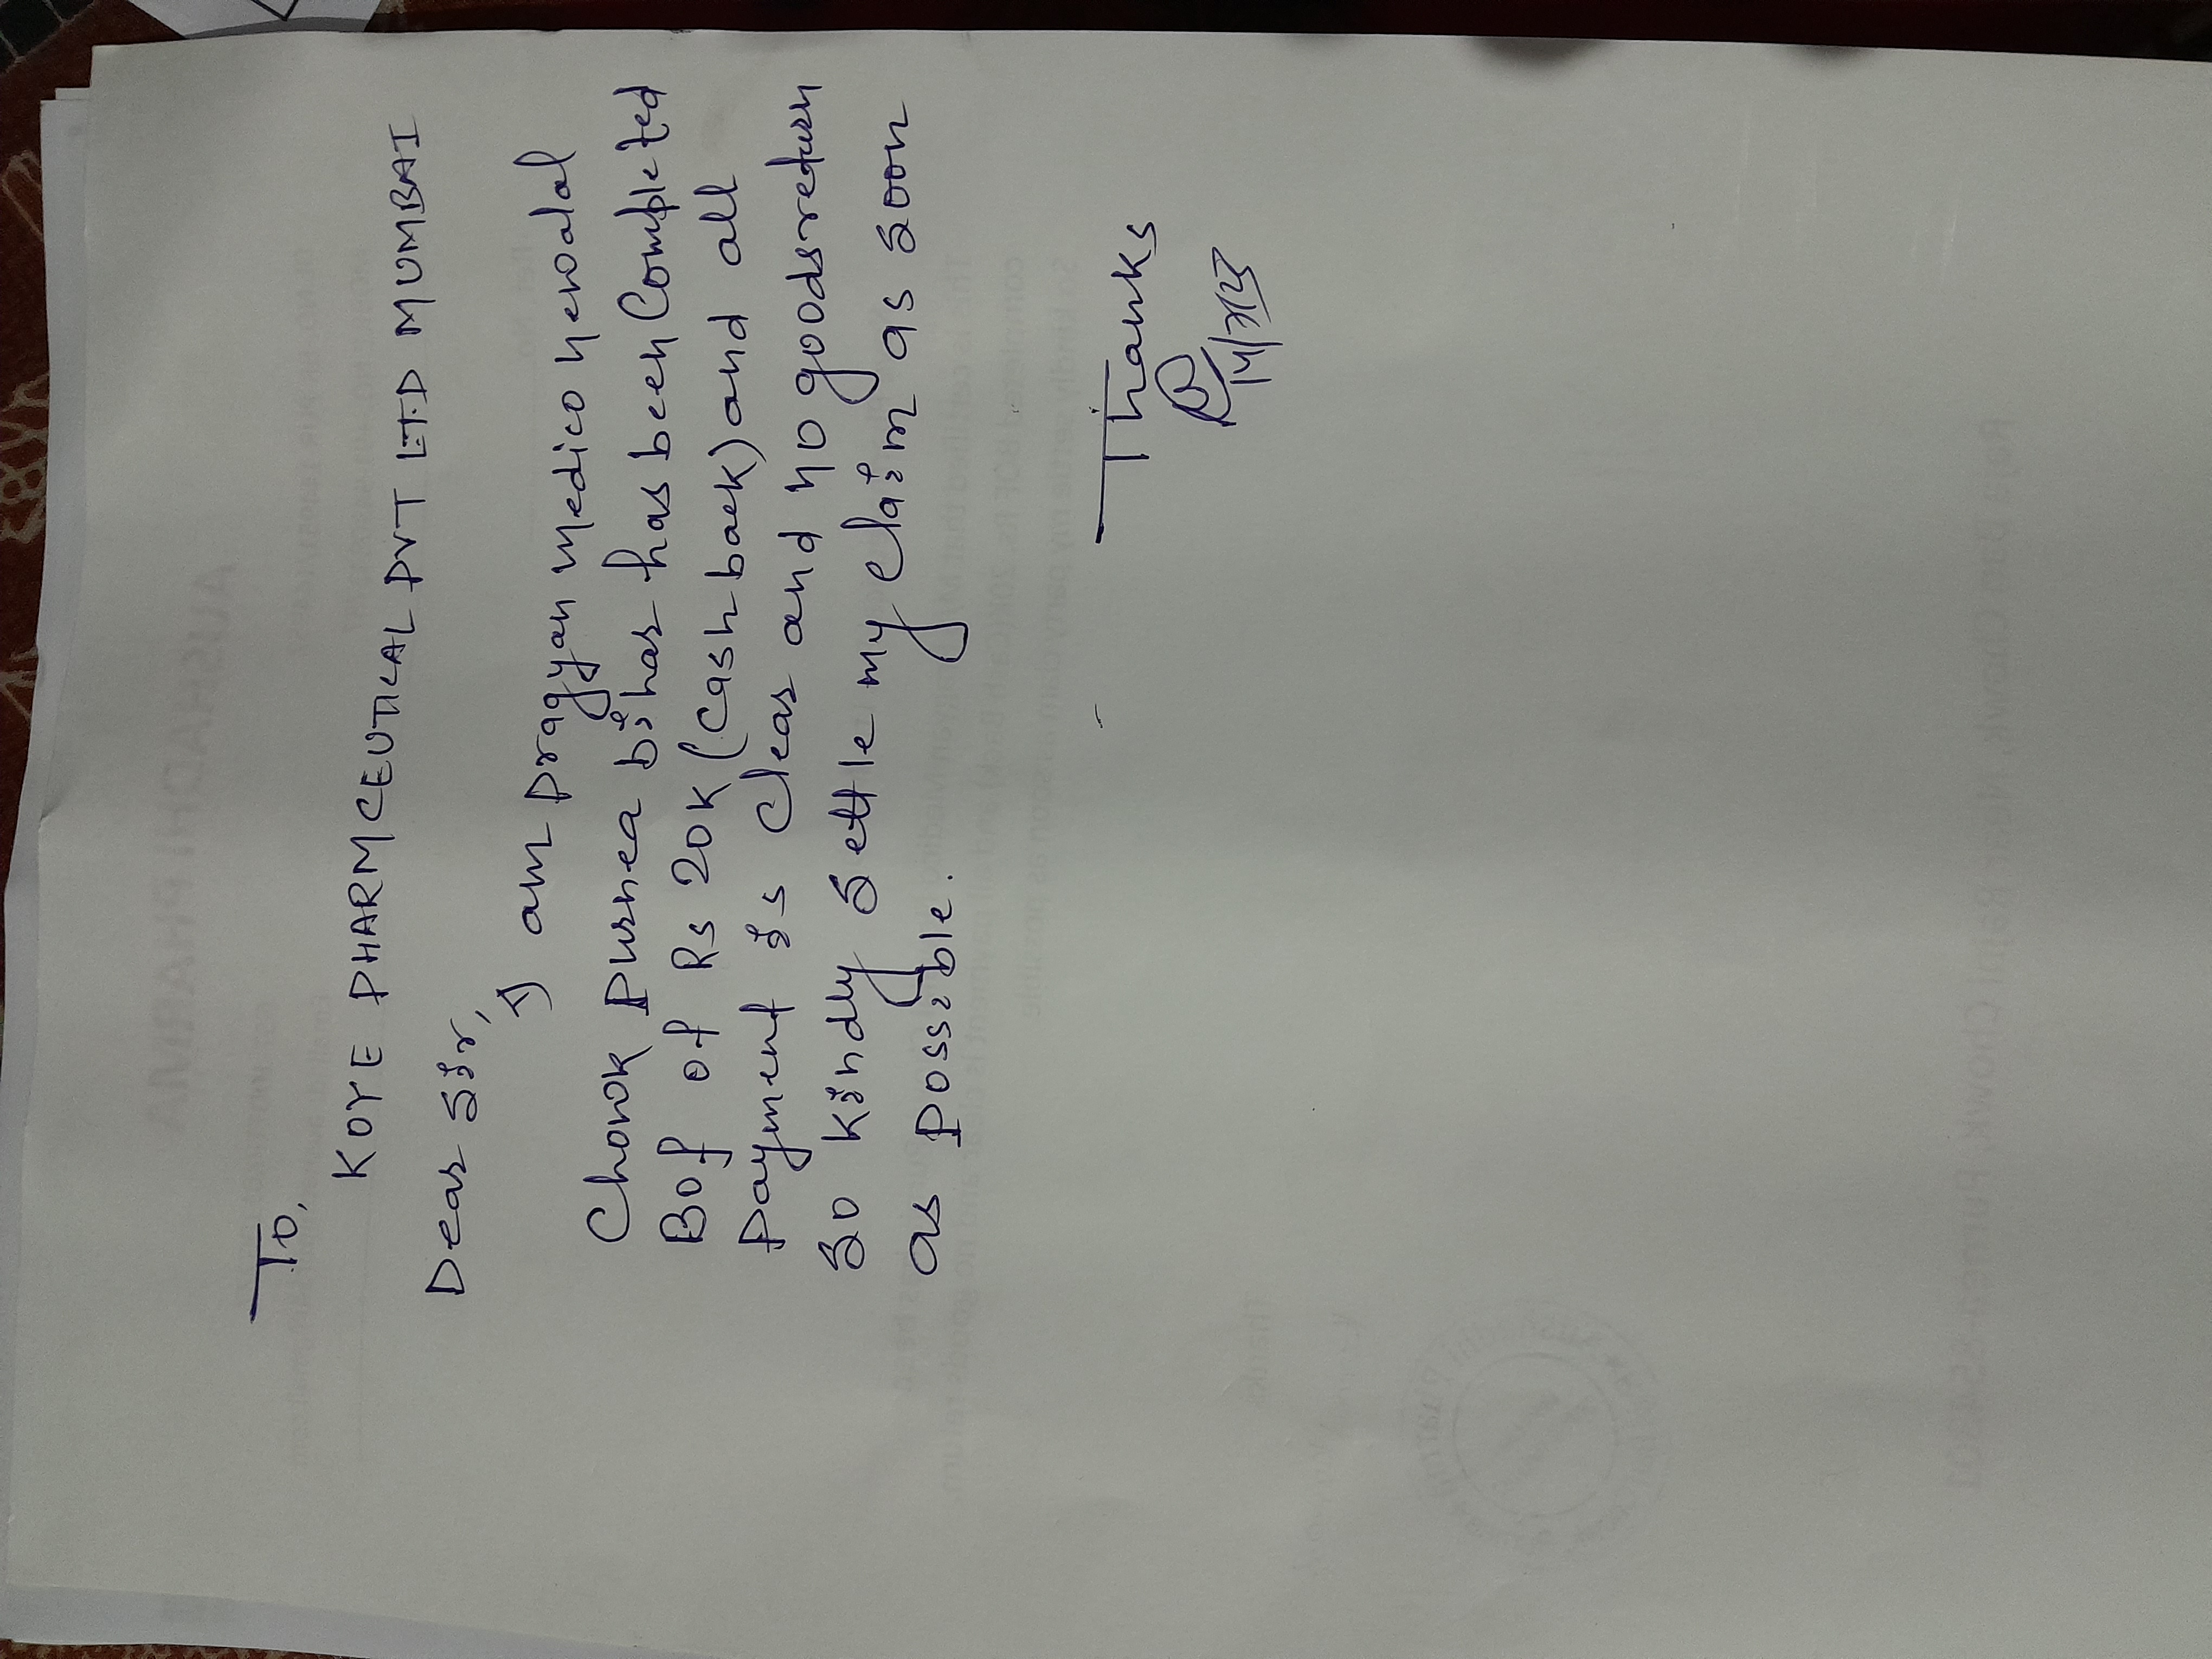 To,
KOYE PHARMCEUTICAL PVT LTD MUMBAI
Dear Sir,
I am pragyan medico
Chowk Purnea bihar has been Completed
Bof of Rs 20K (Cash back) and all
payment is Clear and no goods return
So kindly Settle my claim as soon
as possible.
Thanks